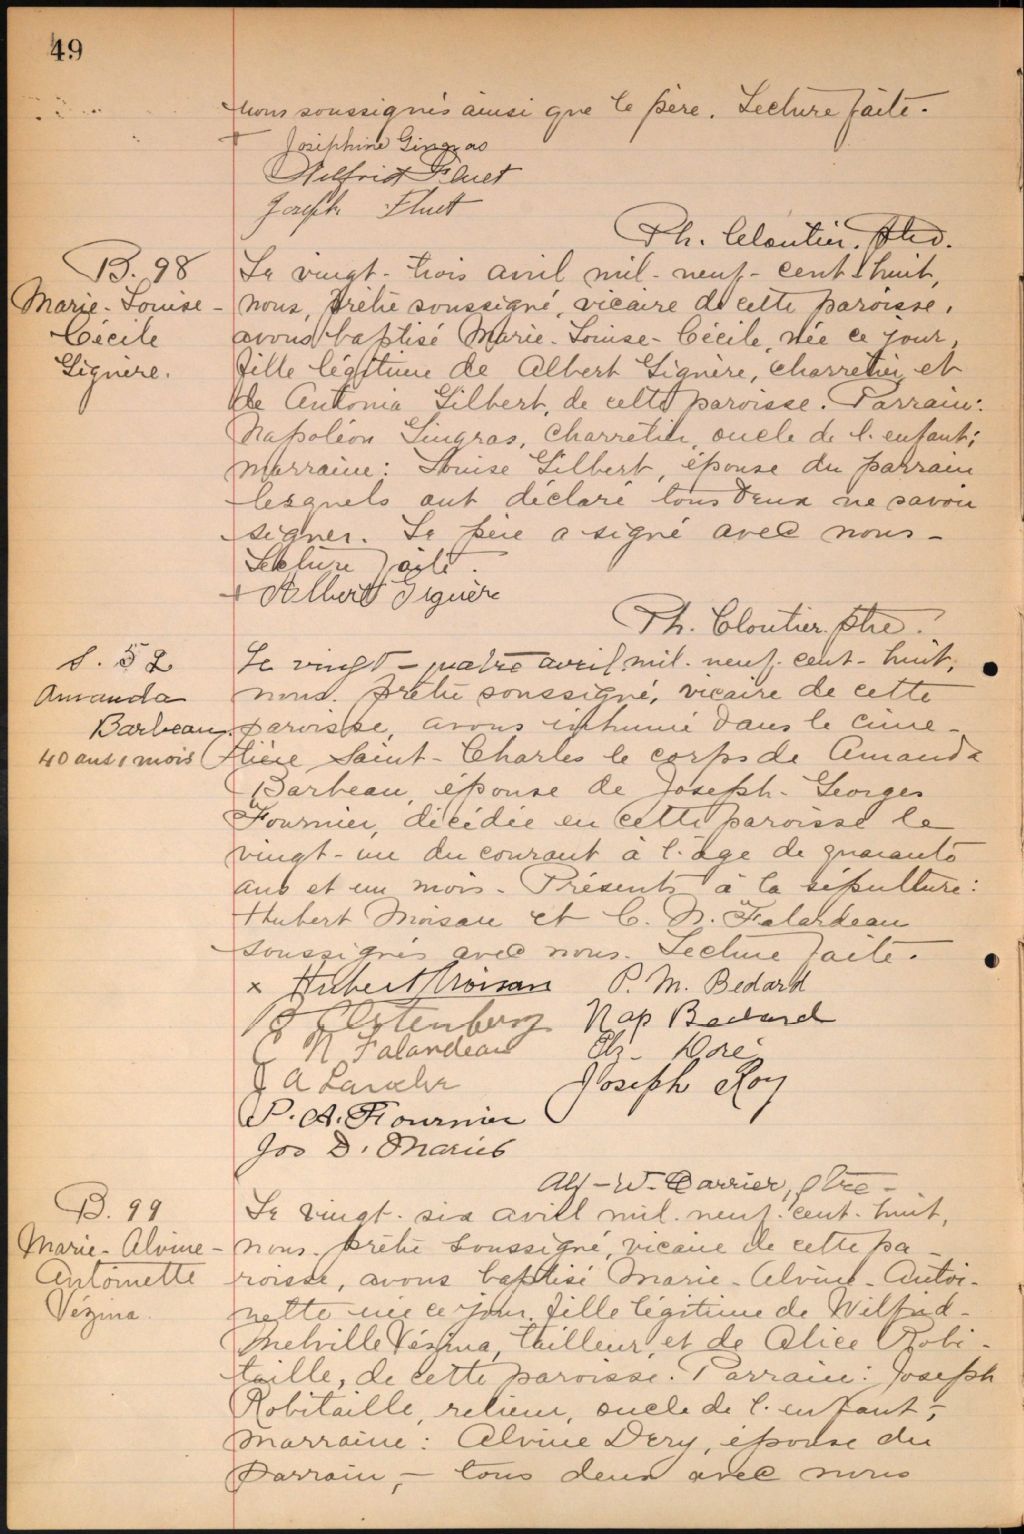 49
nous soussignés ainsi que le père. Lecture faite.
Joséphine Gingras
Wilfrid Fluet
Joseph Fluet
Ph. Cloutier. ptre.
B. 98
Marie-Louise-
Cécile
Giguère.
Le vingt-trois avril mil-neuf-cent-huit,
nous, prêtre soussigné, vicaire de cette paroisse,
avons baptisé Marie-Louise-Cécile, née ce jour,
fille légitime de Albert Giguère, charretier, et
de Antonia Gilbert, de cette paroisse. Parrain:
Napoléon Gingras, charretier, oncle de l'enfant;
marraine: Louise Gilbert, épouse du parrain
lesquels ont déclaré tous deux ne savoir
signer. Le père a signé avec nous-
Lecture faite.
+ Albert Giguère
Ph. Cloutier. ptre.
S. 52
Amanda
Barbeau.
40 ans 1 mois
Le vingt-quatre avril mil-neuf-cent-huit,
nous, prêtre soussigné, vicaire de cette
paroisse, avons inhumé dans le cime-
tière Saint-Charles le corps de Amanda
Barbeau, épouse de Joseph-Georges
Fournier, décédée en cette paroisse le
vingt-un du courant à l'âge de quarante
ans et un mois. Présents à la sépulture:
Hubert Moisan et C. N. Falardeau
soussignés avec nous. Lecture faite.
x Hubert Moisan P. M. Bedard
Nap Bedard
C N Falardeau Elz. Doré
J A Joseph Roy
P. A. Fournier
Jos D. Marier
Alf-W. Carrier, ptre-
B. 99
Marie-Alvine-
Antoinette
Vézina.
Le vingt-six avril mil-neuf-cent-huit,
nous, prêtre soussigné, vicaire de cette pa-
roisse, avons baptisé Marie-Alvine-Antoi-
nette née ce jour, fille légitime de Wilfrid-
Melville Vézina, tailleur, et de Alice Robi-
taille, de cette paroisse. Parrain: Joseph
Robitaille, relieur, oncle de l'enfant;
Marraine: Alvine Dery, épouse du
parrain,- tous deux avec nous